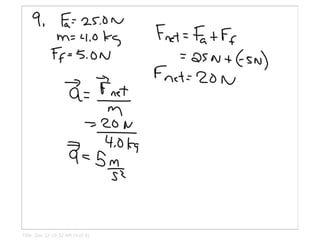 9. Fa = 25.0N
m = 4.0 kg
Ff = 5.0N
Fnet = Fa + Ff
= 25N + (-5N)
Fnet = 20N
a⃗ = F⃗net / m
= 20N / 4.0kg
a⃗ = 5 m/s²